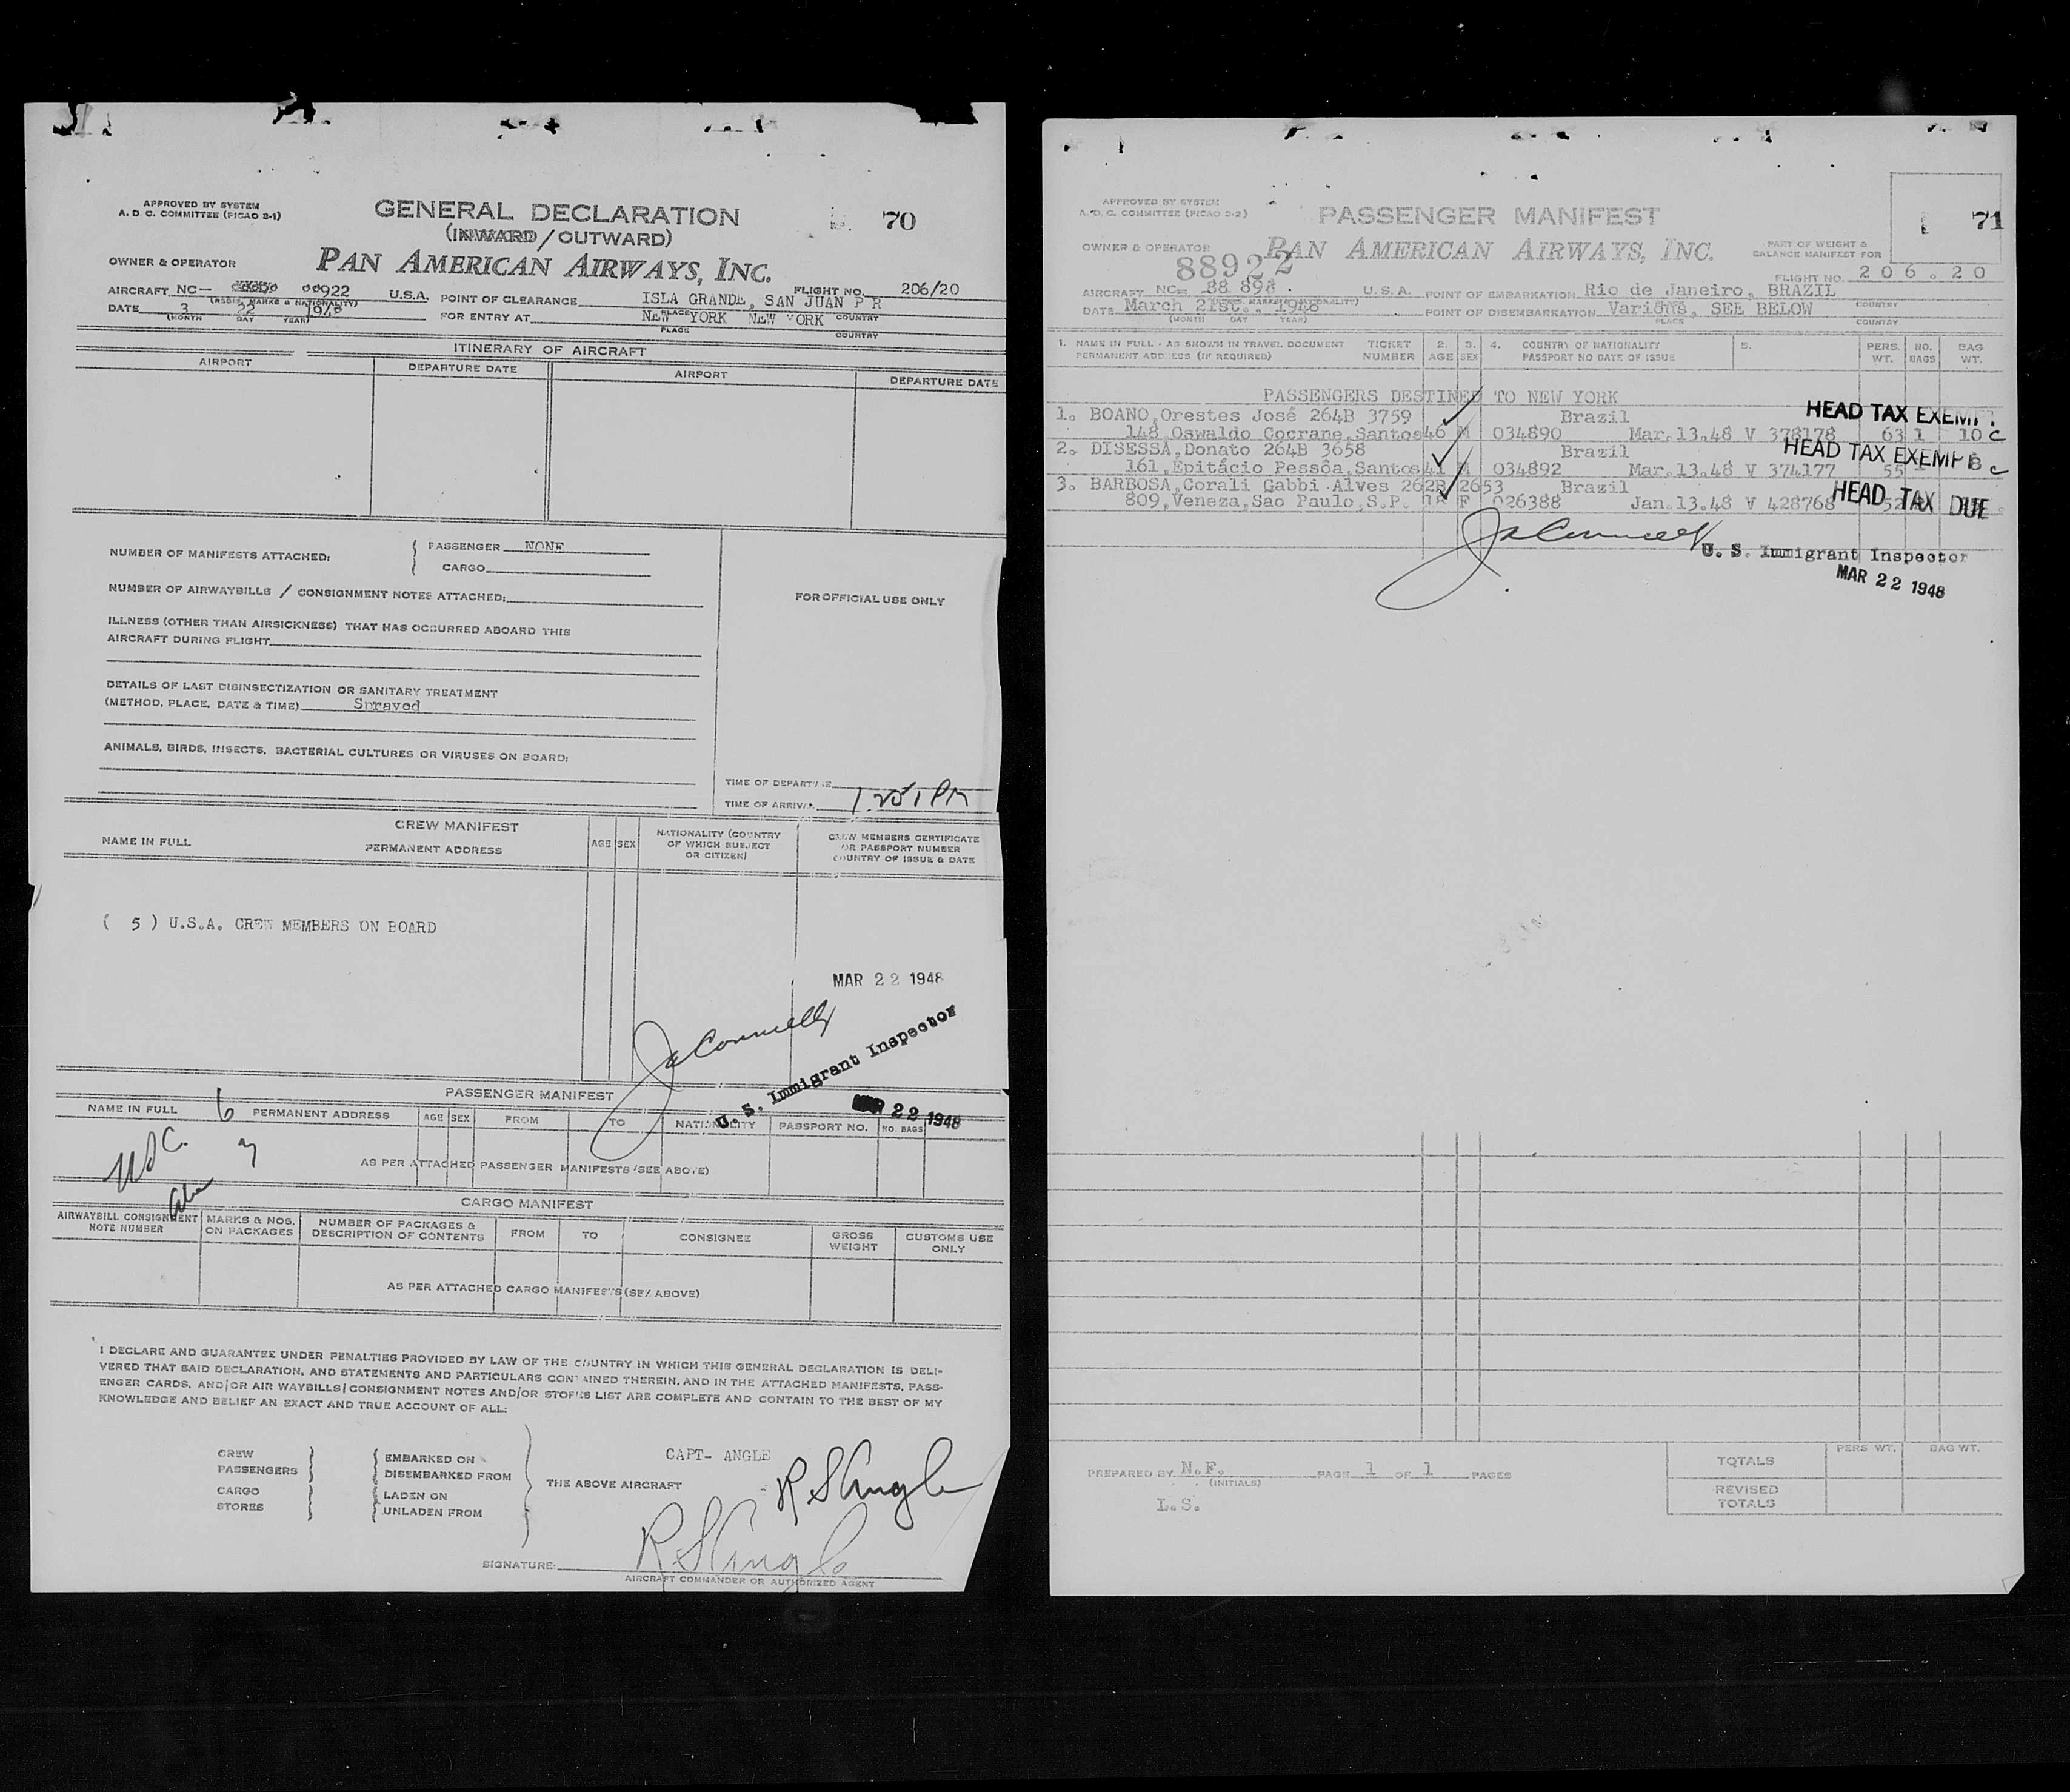 APPROVED BY SYSTEM
A. D. C. COMMITTEE (PICAO 2-1)
GENERAL DECLARATION
(INWARD/OUTWARD)
70
OWNER & OPERATOR
PAN AMERICAN AIRWAYS, INC.
AIRCRAFT NC- 922 U.S.A. POINT OF CLEARANCE ISLA GRANDE, SAN JUAN P R FLIGHT NO. 206/20
(REGIS. MARKS & NATIONALITY)
DATE 3 22 1948 FOR ENTRY AT NEW YORK NEW YORK
(MONTH DAY YEAR)
PLACE COUNTRY
PLACE COUNTRY
ITINERARY OF AIRCRAFT
AIRPORT DEPARTURE DATE AIRPORT DEPARTURE DATE
NUMBER OF MANIFESTS ATTACHED: PASSENGER NONE
CARGO
NUMBER OF AIRWAYBILLS / CONSIGNMENT NOTES ATTACHED:
FOR OFFICIAL USE ONLY
ILLNESS (OTHER THAN AIRSICKNESS) THAT HAS OCCURRED ABOARD THIS
AIRCRAFT DURING FLIGHT
DETAILS OF LAST DISINSECTIZATION OR SANITARY TREATMENT
(METHOD, PLACE, DATE & TIME) Sprayed
ANIMALS, BIRDS, INSECTS, BACTERIAL CULTURES OR VIRUSES ON BOARD:
TIME OF DEPARTURE
TIME OF ARRIVAL
CREW MANIFEST
NAME IN FULL PERMANENT ADDRESS AGE SEX
NATIONALITY (COUNTRY
OF WHICH SUBJECT
OR CITIZEN)
CREW MEMBERS CERTIFICATE
OR PASSPORT NUMBER
COUNTRY OF ISSUE & DATE
( 5 ) U.S.A. CREW MEMBERS ON BOARD
MAR 22 1948
JaConnelly
U. S. Immigrant Inspector
MAR 22 1948
PASSENGER MANIFEST
NAME IN FULL 6 PERMANENT ADDRESS AGE SEX FROM TO NATIONALITY PASSPORT NO. NO. BAGS
AS PER ATTACHED PASSENGER MANIFESTS (SEE ABOVE)
CARGO MANIFEST
AIRWAYBILL CONSIGNMENT
NOTE NUMBER
MARKS & NOS.
ON PACKAGES
NUMBER OF PACKAGES &
DESCRIPTION OF CONTENTS
FROM TO CONSIGNEE
GROSS
WEIGHT
CUSTOMS USE
ONLY
AS PER ATTACHED CARGO MANIFESTS (SEE ABOVE)
I DECLARE AND GUARANTEE UNDER PENALTIES PROVIDED BY LAW OF THE COUNTRY IN WHICH THIS GENERAL DECLARATION IS DELI-
VERED THAT SAID DECLARATION, AND STATEMENTS AND PARTICULARS CONTAINED THEREIN, AND IN THE ATTACHED MANIFESTS, PASS-
ENGER CARDS, AND/OR AIR WAYBILLS/CONSIGNMENT NOTES AND/OR STORES LIST ARE COMPLETE AND CONTAIN TO THE BEST OF MY
KNOWLEDGE AND BELIEF AN EXACT AND TRUE ACCOUNT OF ALL:
CREW
PASSENGERS
CARGO
STORES
EMBARKED ON
DISEMBARKED FROM
LADEN ON
UNLADEN FROM
THE ABOVE AIRCRAFT
CAPT- ANGLE
R S Angle
R S Angle
SIGNATURE:
AIRCRAFT COMMANDER OR AUTHORIZED AGENT
APPROVED BY SYSTEM
A. D. C. COMMITTEE (PICAO 2-2)
PASSENGER MANIFEST
71
OWNER & OPERATOR
PAN AMERICAN AIRWAYS, INC.
PART OF WEIGHT &
BALANCE MANIFEST FOR
88922
FLIGHT NO. 206.20
AIRCRAFT NC- 88 898. U.S.A. POINT OF EMBARKATION Rio de Janeiro, BRAZIL
DATE March 21st., 1948 POINT OF DISEMBARKATION Various, SEE BELOW
(MONTH DAY YEAR) PLACE COUNTRY
1. NAME IN FULL - AS SHOWN IN TRAVEL DOCUMENT
PERMANENT ADDRESS (IF REQUIRED)
TICKET
NUMBER
2.
AGE
3.
SEX
4. COUNTRY OF NATIONALITY
PASSPORT NO DATE OF ISSUE
5.
PERS.
WT.
NO.
BAGS
BAG
WT.
PASSENGERS DESTINED TO NEW YORK
1. BOANO, Orestes José 264B 3759 Brazil HEAD TAX EXEMPT
148 Oswaldo Cocrane, Santos 46 M 034890 Mar.13.48 V 378178 63 1 10 c
2. DISESSA, Donato 264B 3658 Brazil HEAD TAX EXEMPT
161, Epitácio Pessôa, Santos 41 M 034892 Mar.13.48 V 374177 55 8 c
3. BARBOSA, Corali Gabbi Alves 262B 2653 Brazil HEAD TAX DUE
809, Veneza, Sao Paulo, S.P. 18 F 026388 Jan.13.48 V 428768 52
JaConnelly
U. S. Immigrant Inspector
MAR 22 1948
PREPARED BY N.F. PAGE 1 OF 1 PAGES
(INITIALS)
L.S.
PERS WT. BAG WT.
TOTALS
REVISED
TOTALS